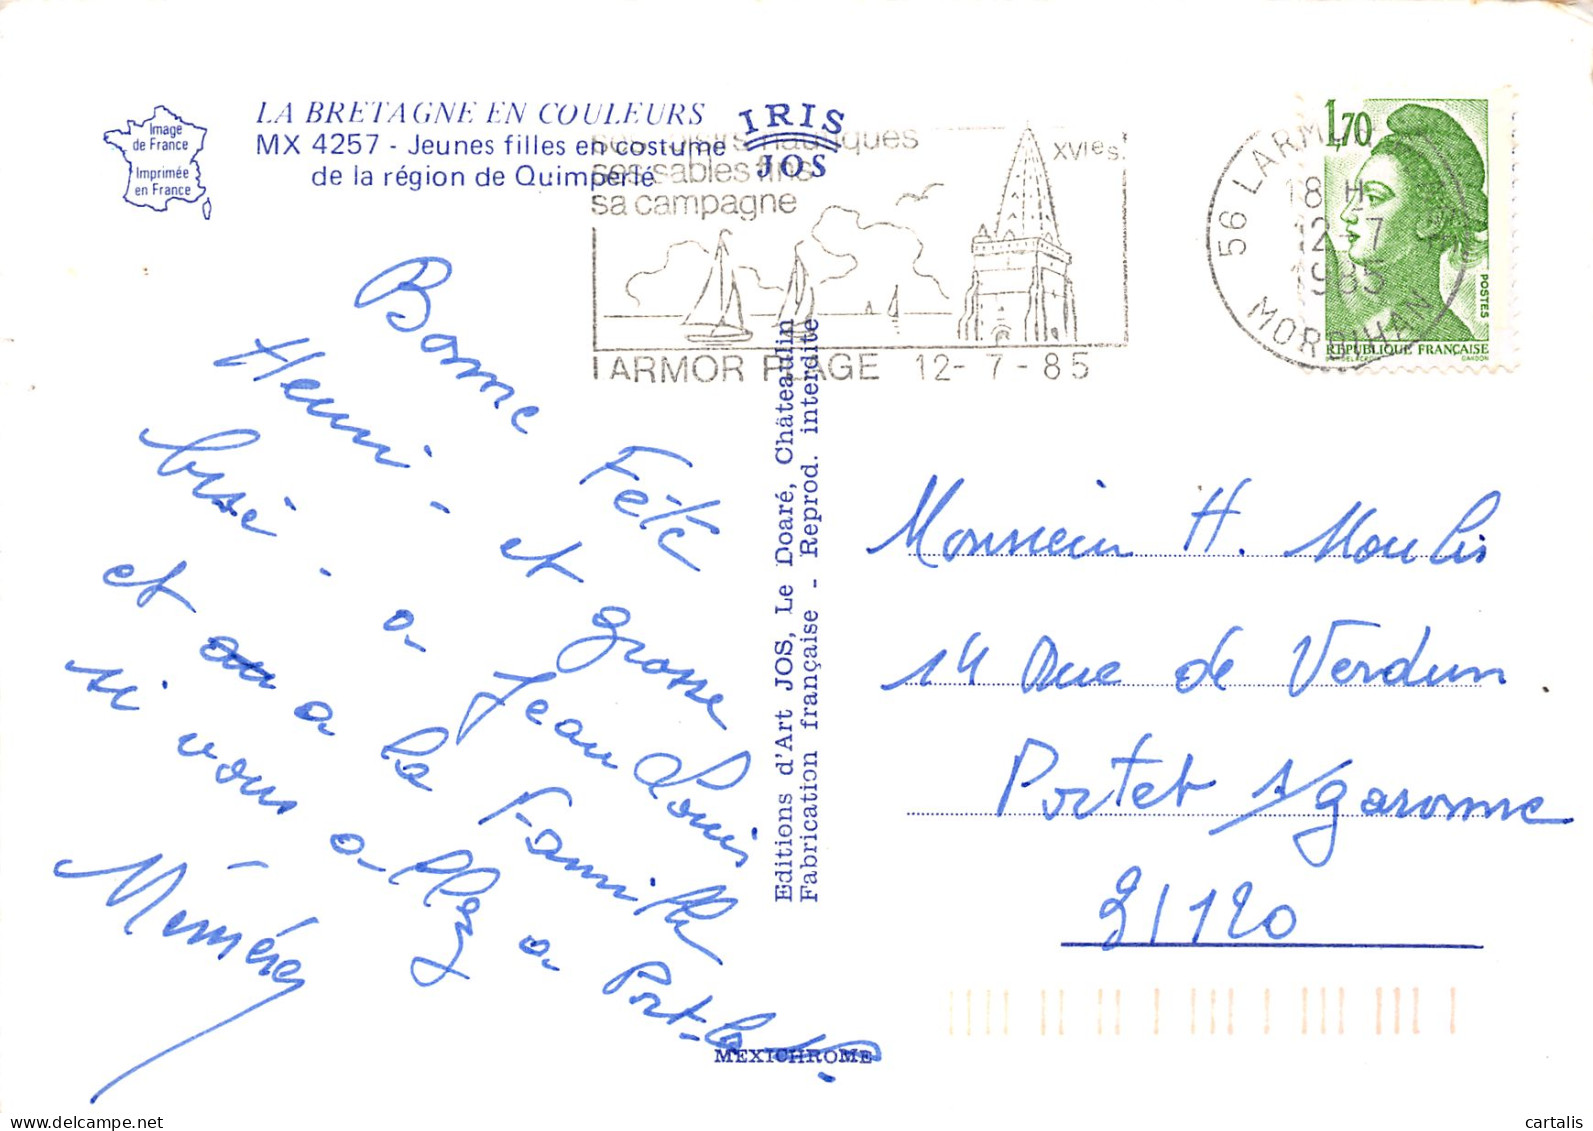 Image
de France
Imprimée
en France
LA BRETAGNE EN COULEURS
MX 4257 - Jeunes filles en costume
de la région de Quimperlé
IRIS
JOS
ses loisirs nautiques
ses sables fins
sa campagne
XVIe s.
LARMOR PLAGE 12-7-85
56 LARMOR
18 H
12-7
1985
MORBIHAN
1,70
POSTES
RÉPUBLIQUE FRANÇAISE
Bonne Fête
Henri - et grosse
bise - a Jean Louis
et a la Famille
si vous allez a Port-la
Mémère
Editions d'Art JOS, Le Doaré, Châteaulin
Fabrication française - Reprod. interdite
MEXICHROME
Monsieur H. Moulis
14 Rue de Verdun
Portet s/garonne
31120
cartalis